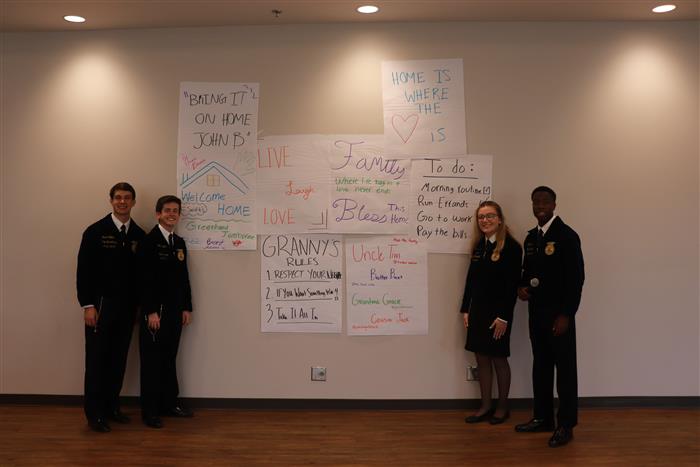 "BRING IT
ON HOME
JOHN B"
Welcome
Home
HOME IS
WHERE
THE
IS
LIVE
Laugh
LOVE
Family
Where life begins &
love never ends
Bless This
Home
To do:
Morning routine
Run Errands
Go to work
Pay the bills
GRANNY'S
RULES
1 RESPECT YOUR
2 IF YOU Want Something
3 Take It All In
Uncle Tim
Brother Brent
Grandma Gracie
Cousin Jack